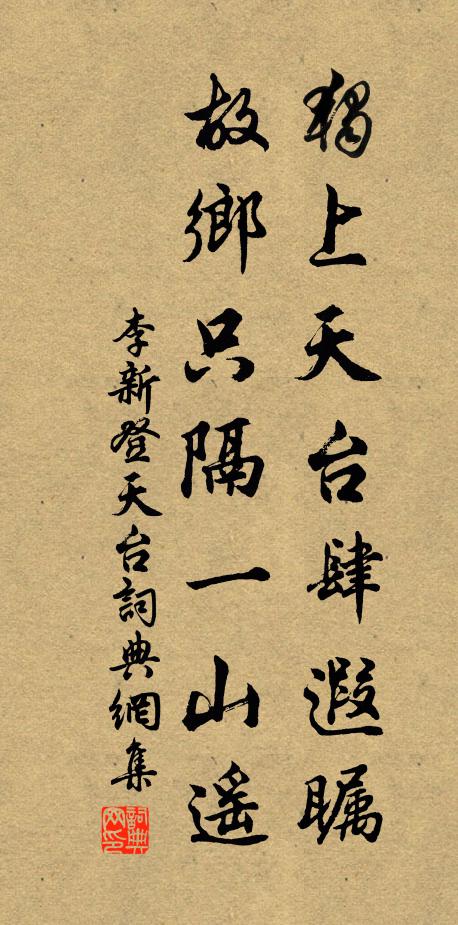 獨上天台肆遐瞩
故鄉只隔一山遥
李新登天台詞典網集
詞典網印